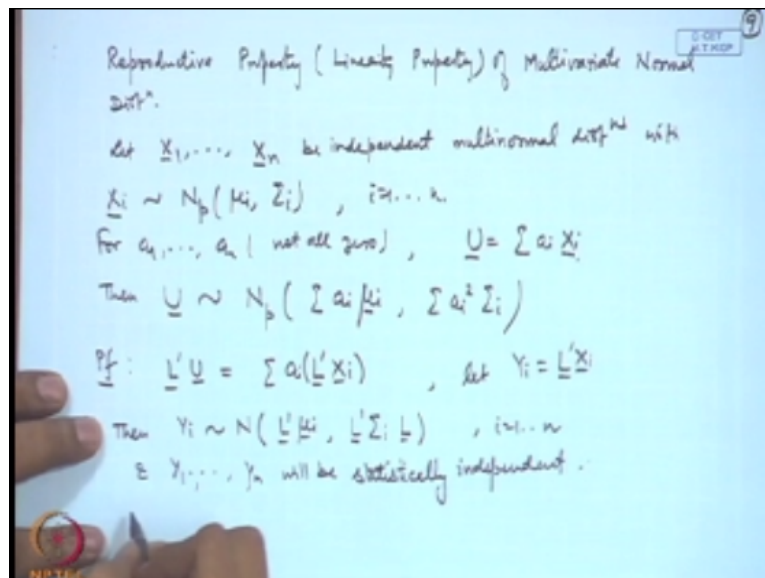 9
Reproductive Property (Linearity Property) of Multivariate Normal
Distⁿ.
Let X̲₁, ..., X̲ₙ be independent multinormal distⁿᵈ with
X̲i ~ Nₚ(μi, Σi) , i=1...n.
For a₁, ..., aₙ (not all zero) , U̲ = Σ ai X̲i
Then U̲ ~ Nₚ( Σ ai μ̲i , Σ ai² Σi )
Pf : L̲'U̲ = Σ ai(L̲'X̲i) , let Yi = L̲'X̲i
Then Yi ~ N( L̲'μ̲i , L̲'Σi L̲ ) , i=1...n
& Y₁, ..., Yₙ will be statistically independent.
NPTEL